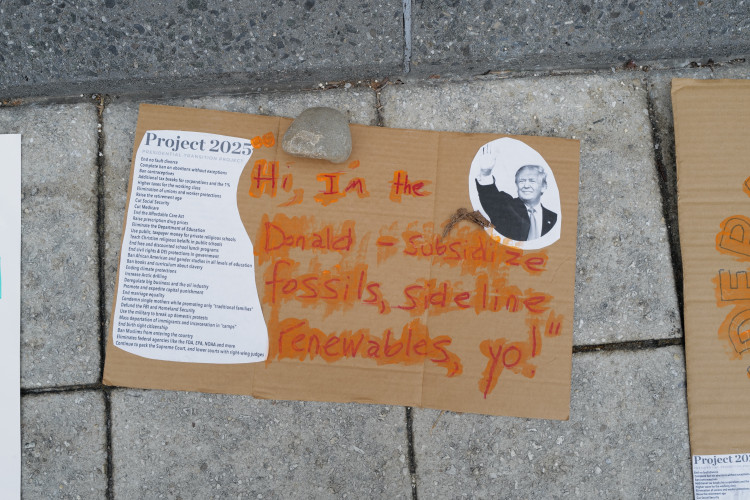 Project 2025
PRESIDENTIAL TRANSITION PROJECT
End no fault divorce
Complete ban on abortions without exceptions
Ban contraceptives
Additional tax breaks for corporations and the 1%
Higher taxes for the working class
Elimination of unions and worker protections
Raise the retirement age
Cut Social Security
Cut Medicare
End the Affordable Care Act
Raise prescription drug prices
Eliminate the Department of Education
Use public, taxpayer money for private religious schools
Teach Christian religious beliefs in public schools
End free and discounted school lunch programs
End civil rights & DEI protections in government
Ban African American and gender studies in all levels of education
Ban books and curriculum about slavery
Ending climate protections
Increase Arctic drilling
Deregulate big business and the oil industry
Promote and expedite capital punishment
End marriage equality
Condemn single mothers while promoting only "traditional families"
Defund the FBI and Homeland Security
Use the military to break up domestic protests
Mass deportation of immigrants and incarceration in "camps"
End birth right citizenship
Ban Muslims from entering the country
Eliminates federal agencies like the FDA, EPA, NOAA and more
Continue to pack the Supreme Court, and lower courts with right-wing judges
"Hi, I'm the
Donald - subsidize
fossils, sideline
renewables, yo!"
Hi
DEP
Project 202